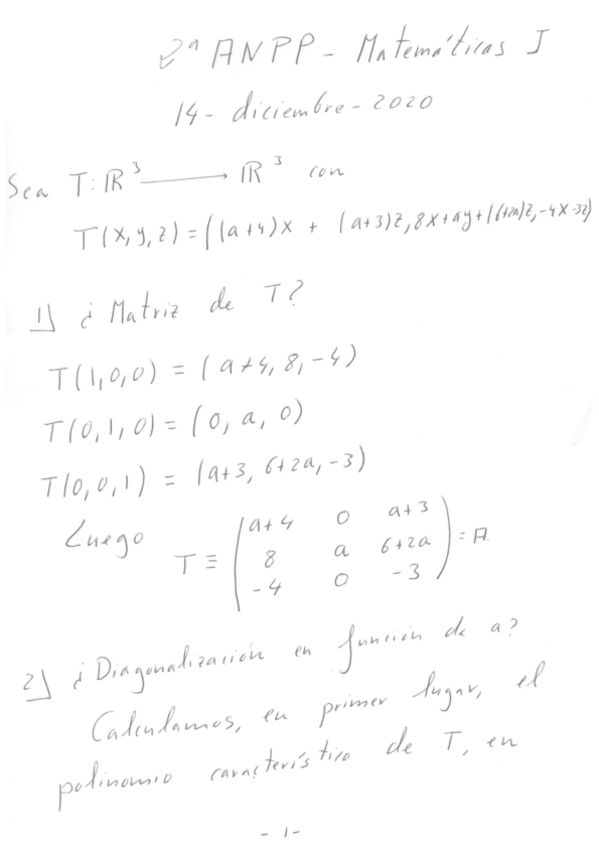 2ª ANPP - Matemáticas I
14 - diciembre - 2020
Sea T: ℝ³ ⟶ ℝ³ con
T(x,y,z) = ((a+4)x + (a+3)z, 8x+ay+(6+2a)z, -4x-3z)
1) ¿Matriz de T?
T(1,0,0) = (a+4, 8, -4)
T(0,1,0) = (0, a, 0)
T(0,0,1) = (a+3, 6+2a, -3)
Luego T ≡ ( a+4 0 a+3
8 a 6+2a
-4 0 -3 ) = A
2) ¿Diagonalización en función de a?
Calculamos, en primer lugar, el
polinomio característico de T, en
- 1 -